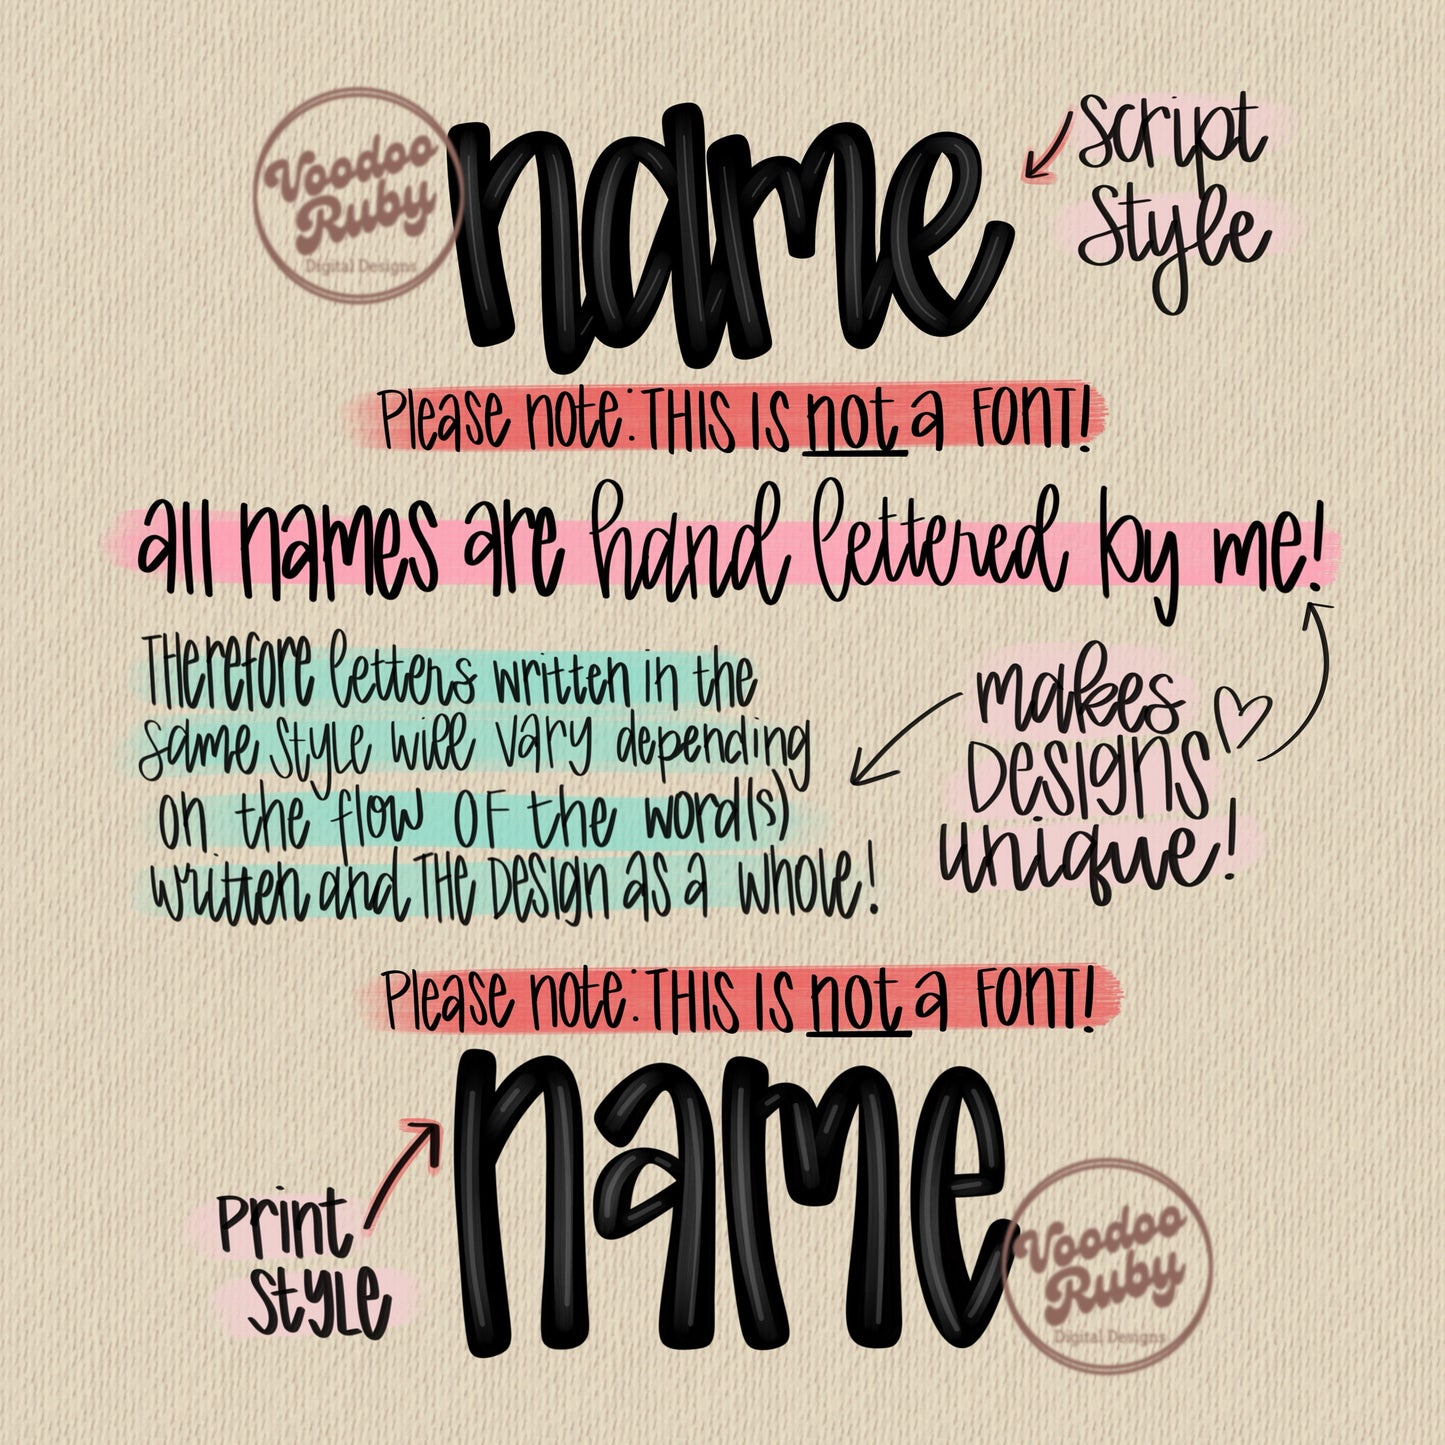 Voodoo
Ruby
Digital Designs
name
script
style
Please note: THIS IS not a FONT!
all names are hand lettered by me!
THerefore letters written in the
same style will vary depending
on the flow OF the word(s)
written and THE DESIGN as a whole!
makes
DESIGNS
unique!
Please note: THIS IS not a FONT!
name
Print
STYLE
Voodoo
Ruby
Digital Designs